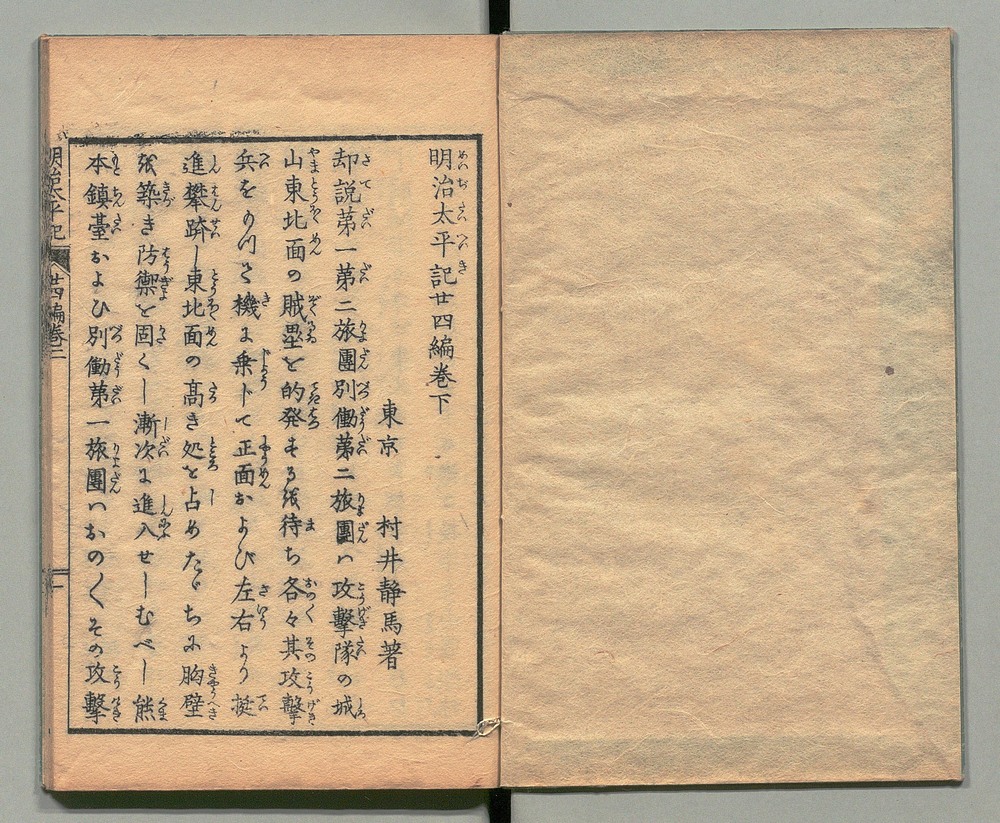 明治太平記廿四編卷下
東京 村井静馬著
却説第一第二旅團別働第二旅團ハ攻擊隊の城
山東北面の賊壘を的発するを待ち各々其攻擊
兵をのけて機に乗じて正面および左右より挺
進攀躋し東北面の髙き処を占めたゞちに胸壁
を築き防禦を固くし漸次に進入せしむべし熊
本鎮臺および別働第一旅團ハおの〱その攻擊
明治太平記 廿四編卷三 一